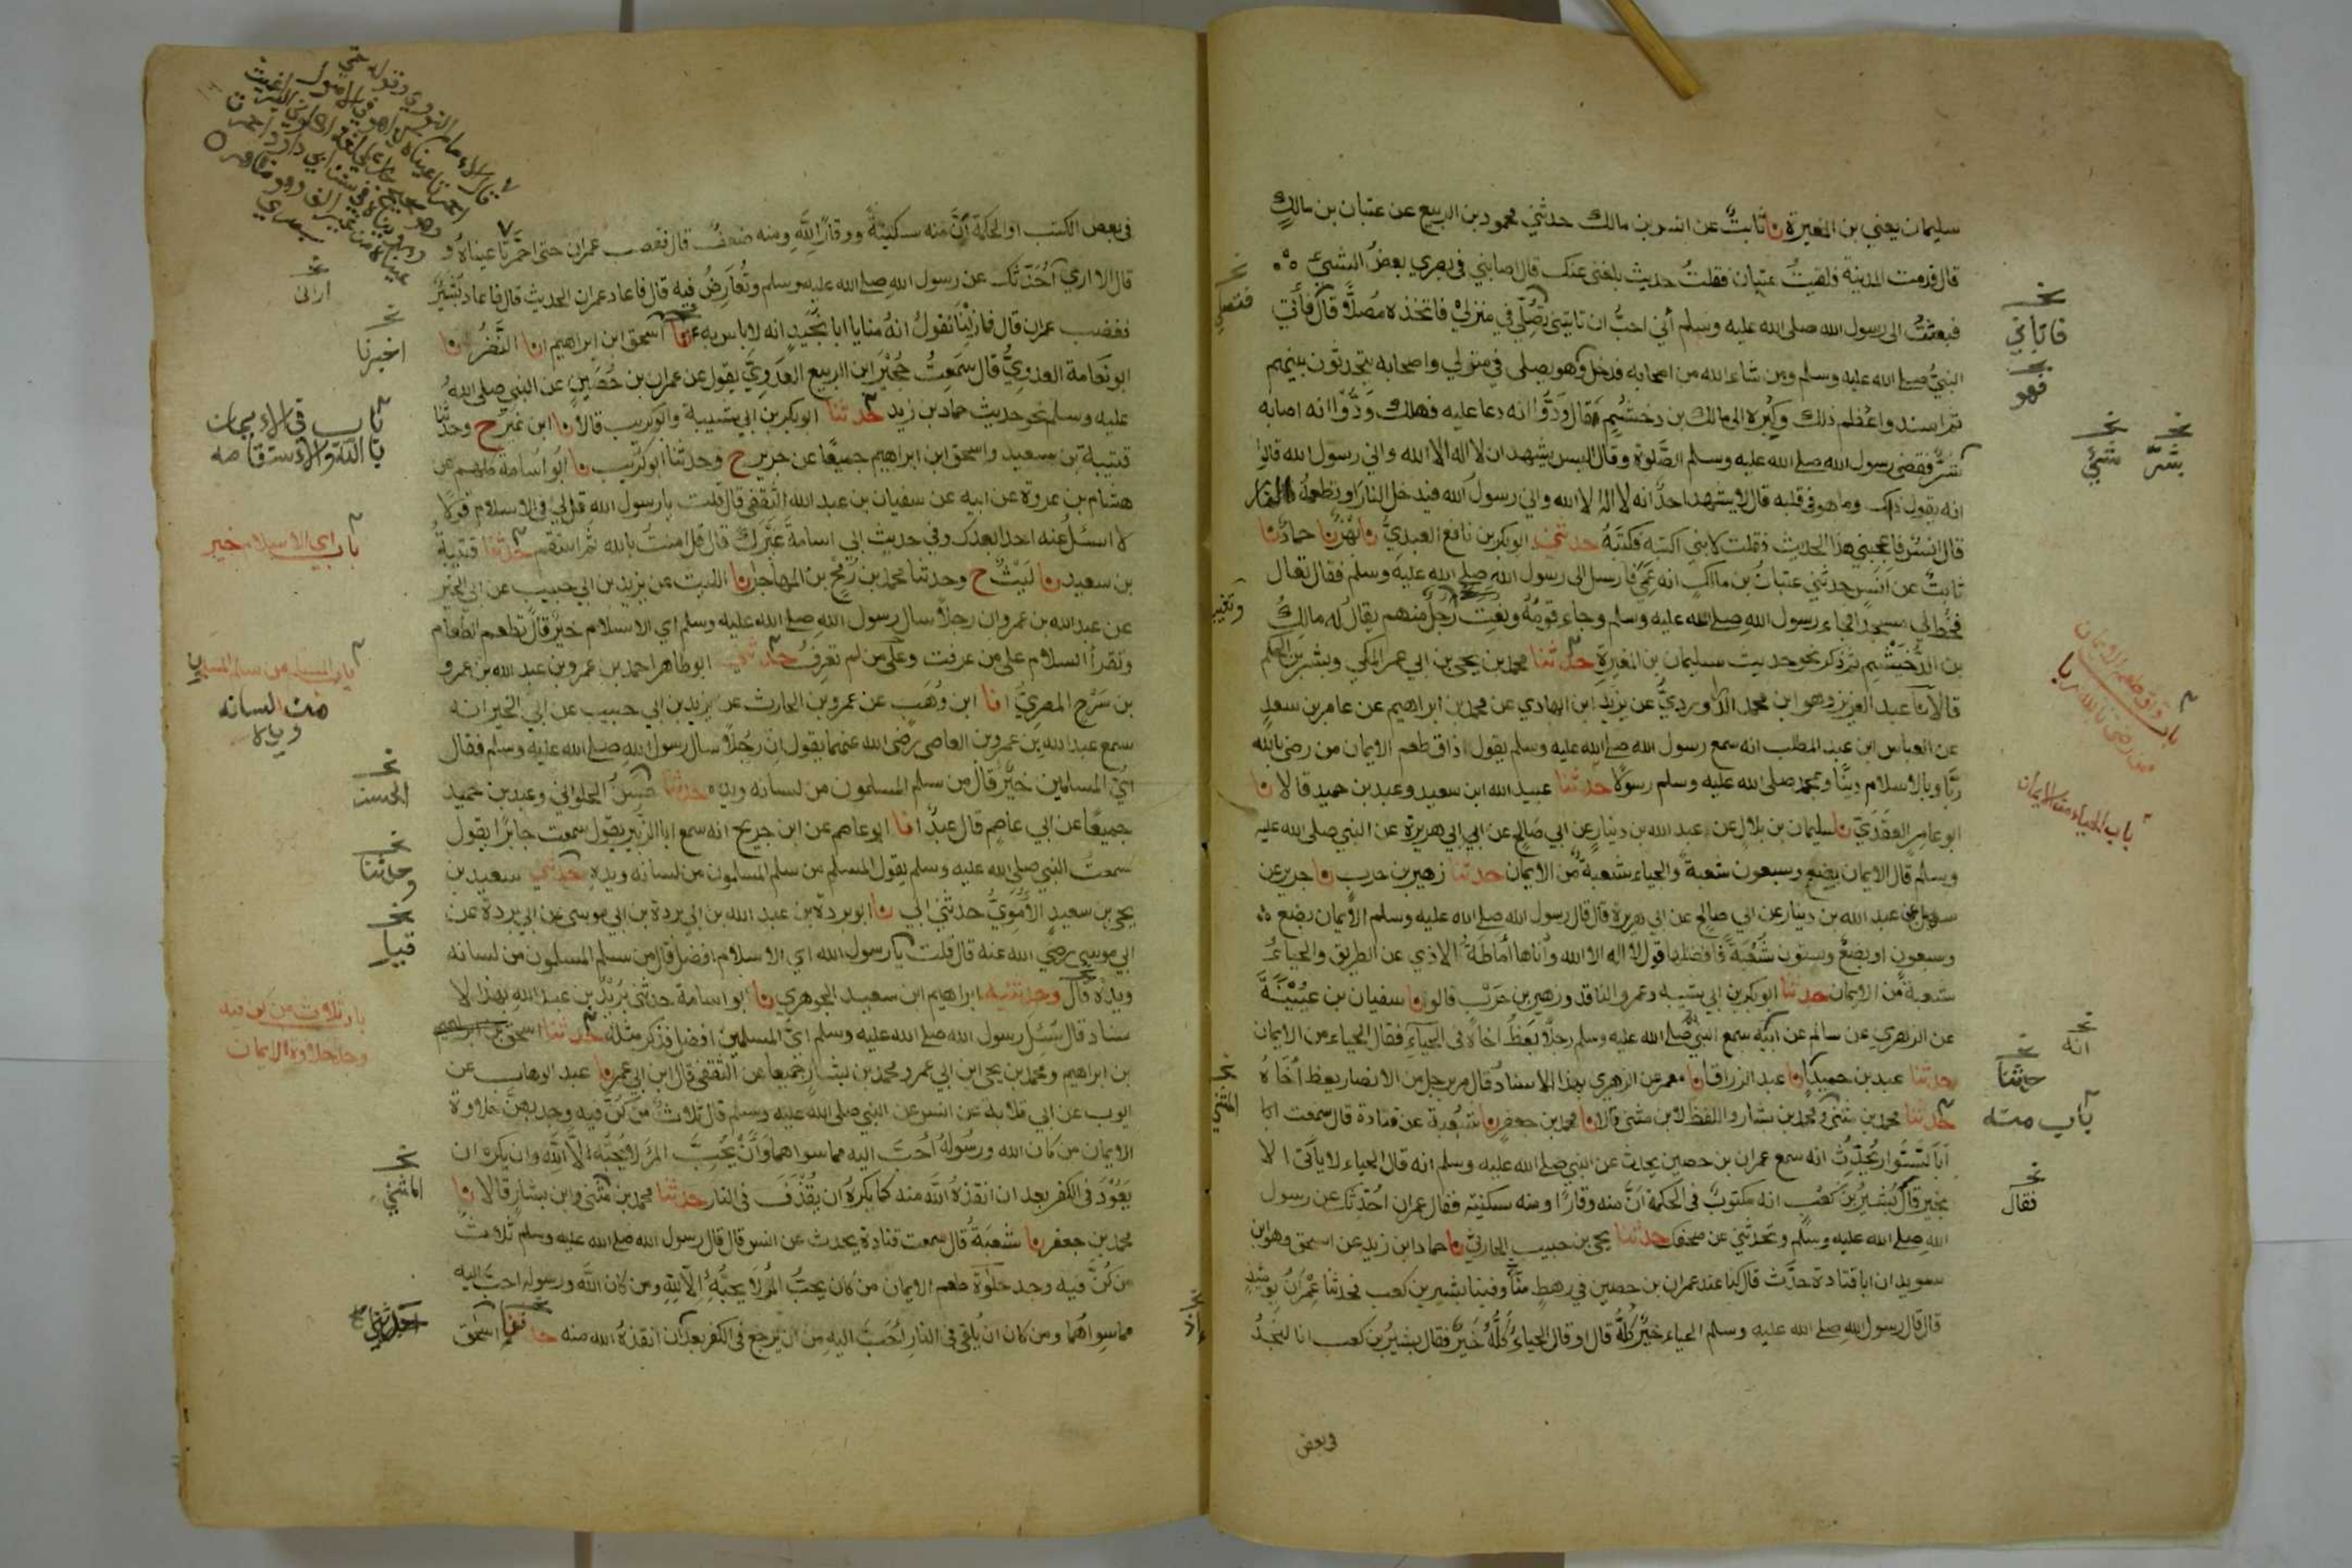 سليمان يعني بن المغيرة نا ثابتٌ عن انس بن مالك حدثني محمود بن الربيع عن عتبان بن مالكٍ
قال قدمت المدينة فلقيتُ عتبان فقلتُ حديث بلغني عنك قال اصابني في بصري بعضُ الشيئ
فبعثتُ الى رسول الله صلى الله عليه وسلم أني احبُّ ان تاتيني تصلّي في منزليْ فاتخذه مُصلًّا قال فأتي
النبيُّ صلى الله عليه وسلم ومن شاء الله من اصحابه فدخل وهو يصلى في منزلي واصحابه يتحدثون بينهم
ثم اسندوا عُظْم ذلك وكُبْره الى مالك بن دخشُمٍ قال وَدُّوا انه دعا عليه فهلك وَدُّوْا انه اصابه
شرٌّ فقضى رسول الله صلى الله عليه وسلم الصَّلوة وقال اليس يشهد ان لا اله الا الله واني رسول الله قالوا
انه يقول ذلك وما هو في قلبه قال لا يشهد احدٌ انه لا اله الا الله واني رسول الله فيدخل النار او تطعمهُ النار
قال انسٌ فاعجبني هذا الحديث فقلت لابني اكتبه فكتبَهُ حدثني ابو بكر بن نافع العبديُّ نا بَهْزٌ نا حمادٌ نا
ثابتٌ عن انسٍ حدثني عتبانُ بن مالكٍ انه عَمِيَ فارسل الى رسول الله صلى الله عليه وسلم فقال تعال
فخُطَّ لي مسجدًا فجاء رسول الله صلى الله عليه وسلم وجاء قومُهُ ونُعِت رجلٌ منهم يقالُ له مالكُ
بن الدُّخَيْشِم ثم ذكر نحو حديث سليمان بن المغيرةِ حدثنا محمد بن يحيى بن ابي عمر المكي وبشر بن الحكم
قالا نا عبد العزيز وهو ابن محمد الدراورديُّ عن يزيد ابن الهادي عن محمد بن ابراهيم عن عامر بن سعدٍ
عن العباس ابن عبد المطلب انه سمع رسول الله صلى الله عليه وسلم يقول ذاق طعم الايمان من رضى بالله
ربًّا وبالاسلام دينًا وبمحمد صلى الله عليه وسلم رسولًا حدثنا عبيد الله ابن سعيد وعبد بن حميد قالا نا
ابو عامر العقَدَيّ نا سليمان بن بلالٍ عن عبد الله بن دينارٍ عن ابي صالح عن ابي هريرة عن النبي صلى الله عليه
وسلم قال الايمان بضع وسبعون شعبة والحياء شعبةٌ من الايمان حدثنا زهير بن حرب نا جرير عن
سهيل عن عبد الله بن دينار عن ابي صالحٍ عن ابي هريرة قال قال رسول الله صلى الله عليه وسلم الأيمان بضع
وسبعون او بضعٌ وستون شُعْبَةً فافضلها قول لا اله الا الله وأدناها أماطَةُ الاذي عن الطريق والحياءُ
شعبةٌ من الايمان حدثنا ابو بكر بن ابي شيبه وعمرو الناقد وزهير بن حَرْبٍ قالوا نا سفيان بن عيُيْنَة
عن الزهري عن سالم عن ابيه سمع النبي صلى الله عليه وسلم رجلًا يَعظُ اخاهُ في الحياءِ فقال الحياء من الايمان
حدثنا عبد بن حميد انا عبد الرزاق انا معمر عن الزهري بهذا الاسناد قال مر برجل من الانصار يعظ أخَاهُ
حدثنا محمد بن مثنى ومحمد بن بشار واللفظ لابن مثنى قالا نا محمد بن جعفر نا شُعبة عن قتادة قال سمعت ابا
أبا السَّوار يُحدِّثُ انه سمع عمران بن حصين يحدث عن النبي صلى الله عليه وسلم انه قال الحياء لا يأتى الا
بخير قال بُشيرُ بن كعبٍ انه مكتوبٌ في الحكمة أنَّ منه وقارًا ومنه سكينة فقال عمران احدثك عن رسول
الله صلى الله عليه وسلم وتحدثني عن صحفك حدثنا يحيى بن حبيب الحارثيّ نا حماد ابن زيد عن اسحق وهو ابن
سويد ان ابا قتادة حدّث قال كنا عند عمران بن حصين في رهطٍ منّا وفينا بشير بن كعب فحدثنا عِمْرَانُ يومئذٍ
قال قال رسول الله صلى الله عليه وسلم الحياء خيرٌ كلُّهُ قال او قال الحياءُ كُلُّهُ خَيْرٌ فقال بشيرُ بن كعب انا لنجدُ
في بعض
فاتاني
فهو
بشرٍّ
شيئ
باب ذاق طعم الايمان
من رضى بالله ربا
باب الحياء من الايمان
انه
حدثنا
باب منه
فقال
المثنى
في بعض الكتب او الحكمة أنَّ منه سكينةً ووقارًا لِلّهِ ومنه ضعفٌ قال فغضب عمران حتى احمرّتا عيناهُ و
قال الا اري اُحَدِّثُك عن رسول الله صلى الله عليه وسلم وتُعارِضُ فيه قال فاعاد عمران الحديث قال فاعاد بُشَيْرٌ
فغضب عمران قال فما زِلْنا نقولُ انهُ منا يا ابا نُجَيدٍ انه لا باس به حدثنا اسحق ابن ابراهيم انا النَّضْرُ نا
ابو نَعامة العدويُّ قال سَمَعِتُ حُجَيْر ابن الربيع العدويَّ يقول عن عمران بن حُصَينٍ عن النبي صلى اللهُ
عليه وسلم نحو حديث حماد بن زيد حدثنا ابو بكر بن ابي شيبة وابو كريب قالا نا ابن نمير ح وحدثنا
قتيبة بن سعيد واسحق ابن ابراهيم جميعًا عن جرير ح وحدثنا ابو كريب نا ابو اسامة كلهم عن
هشام بن عروة عن ابيه عن سفيان بن عبد الله الثقفي قال قلت يا رسول الله قل لي في الاسلام قولًا
لا اسئلُ عنه احدًا بعدك وفي حديث ابي اسامة غيْرَك قال قل امنتُ بالله ثم استقم حدثنا قتيبةُ
بن سعيد نا لَيْثٌ ح وحدثنا محمد بن رُمحِ بن المهاجر انا الليث عن يزيد بن ابي حبيب عن ابي الخير
عن عبد الله بن عمرو ان رجلًا سال رسول الله صلى الله عليه وسلم اي الاسلام خيرٌ قال تطعم الطعام
وتقرأ السلام على من عرفت وعلى من لم تعرف حدثني ابو طاهر احمد بن عمرو بن عبد الله بن عمرو
بن سَرْح المصريَّ انا ابن وَهَب عن عمرو بن الحارث عن يزيد بن ابي حبيب عن ابي الخير انه
سمع عبد الله بن عمرو بن العاصي رضى الله عنهما يقول ان رجُلًا سال رسول الله صلى الله عليه وسلم فقال
ايُّ المسلمين خيرٌ قال من سلم المسلمون من لسانه ويده حدثنا حسن الحلوانيّ وعبد بن حميد
جميعًا عن ابي عاصم قال عبدٌ انا ابو عاصم عن ابن جريج انه سمع ابا الزُّبَيْر يقول سمعت جابرًا يقول
سمعتُ النبي صلى الله عليه وسلم يقول المسلم من سلم المسلمون من لسانه ويده حدثني سعيد بن
يحيى بن سعيدٍ الأُمَوِيُّ حدثني ابي نا ابو بردة بن عبد الله بن ابي بردة بن ابي موسى عن ابي بردة عن
ابي موسى رضي الله عنه قال قلت يا رسول الله اي الاسلام افضل قال من سلم المسلمون من لسانه
ويده قال وحدثنيه ابراهيم ابن سعيد الجوهري نا ابو اسامة حدثني بُرَيْدُ بن عبد الله بهذا لا
سناد قال سُئِلَ رسول الله صلى الله عليه وسلم ايُّ المسلمين افضل فذكر مثله حدثنا اسحق بن ابراهيم
بن ابراهيم ومحمد بن يحيى ابن ابي عمر ومحمد بن بشار جميعا عن الثقفي قال ابن ابي عمر نا عبد الوهاب عن
ايوب عن ابي قلابة عن انس عن النبي صلى الله عليه وسلم قال ثلاثٌ من كُنَّ فيه وجد بهنَّ حلاوة
الايمان من كان الله ورسولهُ احبَّ اليه مما سواهما وَأَنْ يُحِبَّ المرْءَ لا يُحبُّهُ الَّا لِلّه وان يكره ان
يَعُوْدَ في الكفر بعد ان انقذهُ الله منه كما يكرهُ ان يُقْذَفَ في النار حدثنا محمد بن مثنى وابن بشارٍ قالا نا
محمد بن جعفر نا شعبَةُ قال سمعت قتادة يحدث عن انس قال قال رسول الله صلى الله عليه وسلم ثلاث
من كُنَّ فيه وجد حلاوة طعم الايمان من كان يحبُّ المرْءَ لا يحبُّهُ الَّا لِلّهِ ومن كان الله ورسوله احبَّ اليه
مما سِواهُما ومن كان ان يُلقى في النار احَبَّ اليه من ان يرجع في الكفر بعد ان انقذهُ الله منه حدثنا اسحق
اخبرنا
باب في الايمان
بالله والاستقامه
باب اي الاسلام خير
باب المسلم من سلم المسلمون
من لسانه
ويده
الحسن
وحدثنا
باب ثلاث من كن فيه
وجد حلاوة الايمان
المثنى